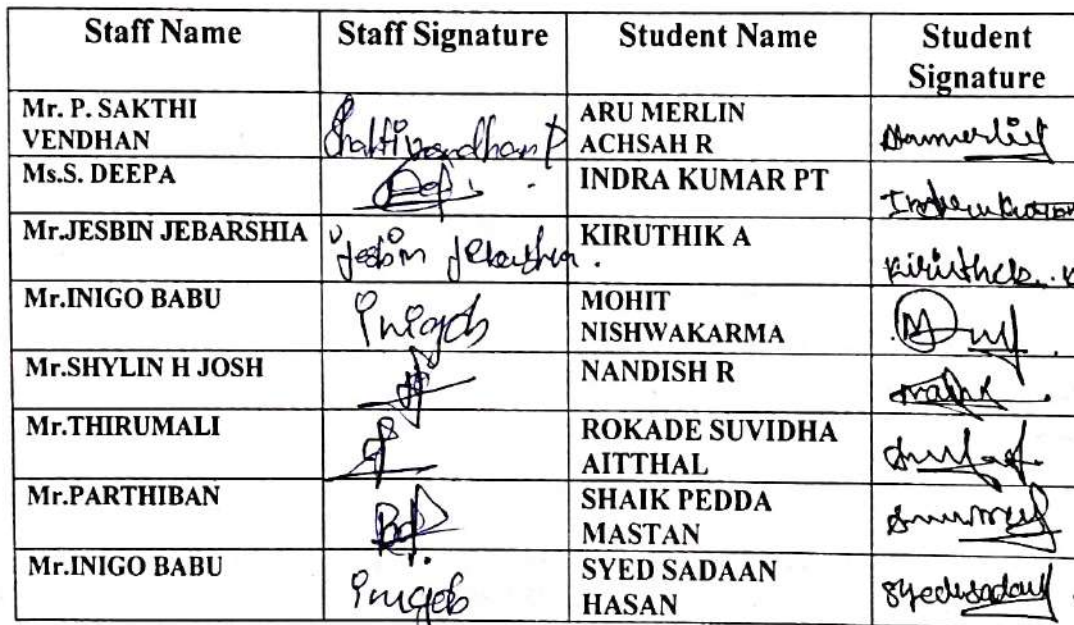 Staff Name Staff Signature Student Name Student
Signature
Mr. P. SAKTHI ARU MERLIN
VENDHAN Shaktivendhan P ACHSAH R
Ms.S. DEEPA INDRA KUMAR PT
Mr.JESBIN JEBARSHIA Jesbin KIRUTHIK A
Mr.INIGO BABU Inigob MOHIT
NISHWAKARMA
Mr.SHYLIN H JOSH NANDISH R
Mr.THIRUMALI ROKADE SUVIDHA
AITTHAL
Mr.PARTHIBAN SHAIK PEDDA
MASTAN
Mr.INIGO BABU Inigob SYED SADAAN
HASAN